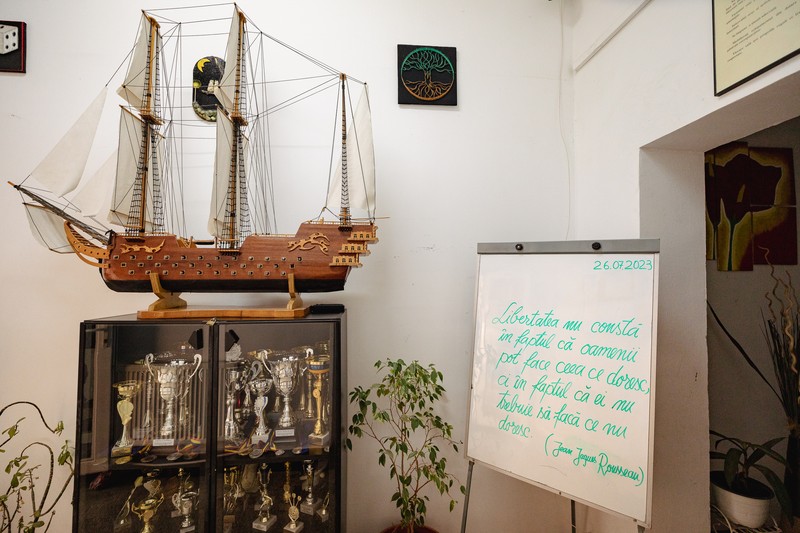 26.07.2023
Libertatea nu constă
în faptul că oamenii
pot face ceea ce doresc,
ci în faptul că ei nu
trebuie să facă ce nu
doresc.
(Jean Jaques Rousseau)